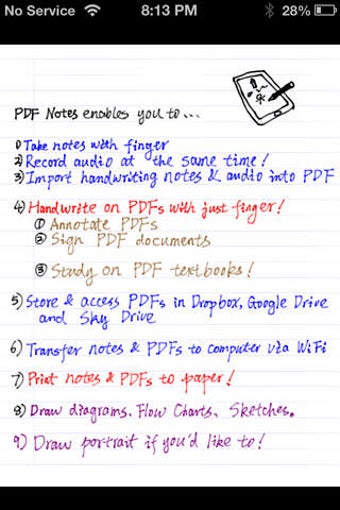 No Service 8:13 PM 28%
PDF Notes enables you to...
1) Take notes with finger
2) Record audio at the same time!
3) Import handwriting notes & audio into PDF
4) Handwrite on PDFs with just finger!
① Annotate PDFs
② Sign PDF documents
③ Study on PDF textbooks!
5) Store & access PDFs in Dropbox, Google Drive
and Sky Drive
6) Transfer notes & PDFs to computer via WiFi
7) Print notes & PDFs to paper!
8) Draw diagrams. Flow Charts. Sketches.
9) Draw portrait if you'd like to!